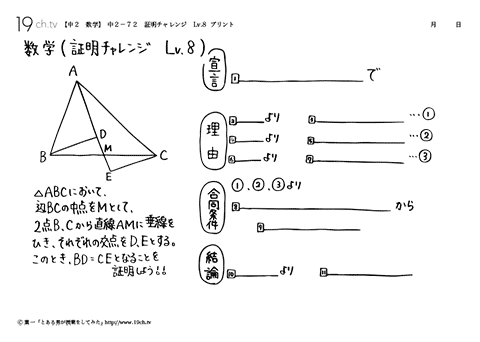 19ch.tv 【中2 数学】 中2-72 証明チャレンジ Lv.8 プリント 月 日
数学(証明チャレンジ Lv.8)
宣言
1 で
A
B
C
D
M
E
理由
2 より 3 …①
4 より 5 …②
6 より 7 …③
△ABCにおいて、
辺BCの中点をMとして、
2点B、Cから直線AMに垂線を
ひき、それぞれの交点をD、Eとする。
このとき、BD=CEとなることを
証明しよう!!
合同条件
①、②、③より
8 から
9
結論
10 より 11
© 葉一「とある男が授業をしてみた」http://www.19ch.tv